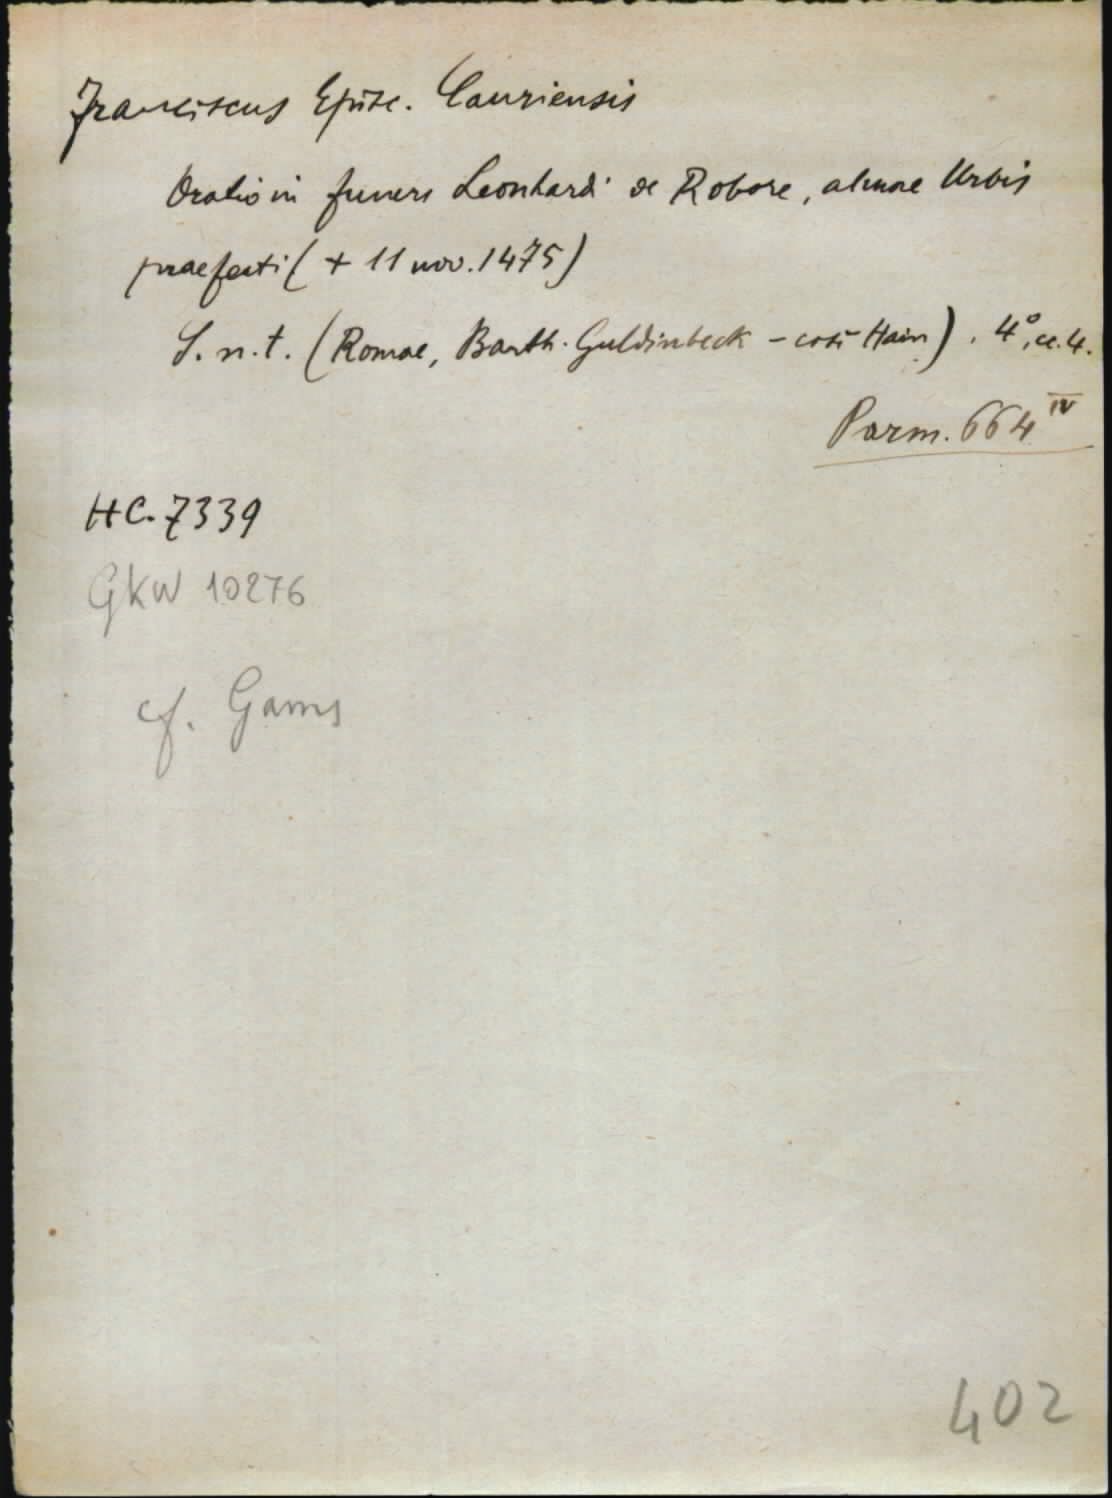 Franciscus Episc. Cauriensis
Oratio in funere Leonhardi de Robore, almae Urbis
praefecti ( + 11 nov. 1475)
S. n. t. (Romae, Barth. Guldinbeck - così Hain). 4°, cc. 4.
Parm. 664 IV
HC. 7339
GKW 10276
cf. Gams
402